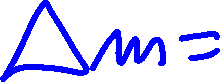 Δm =